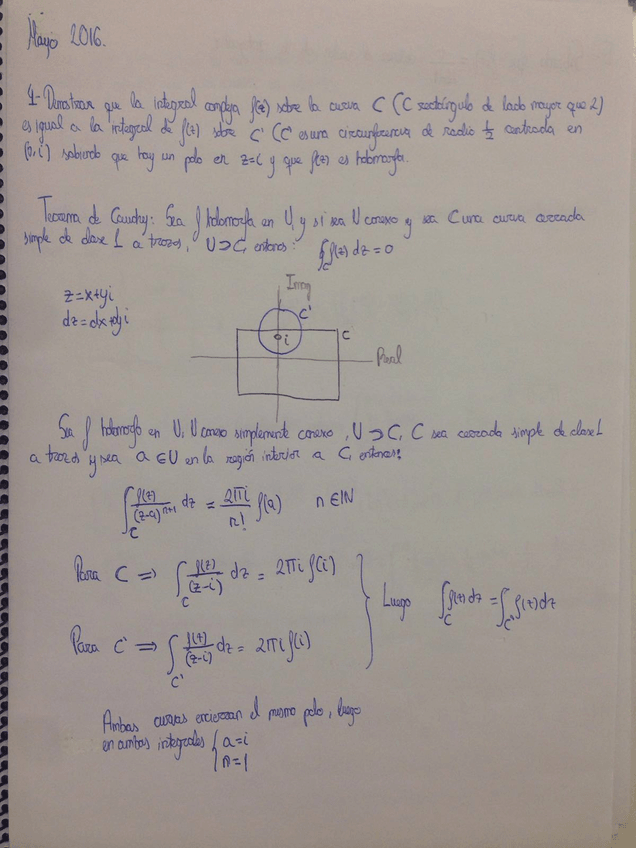 Mayo 2016.
1- Demostrar que la integral compleja f(z) sobre la curva C (C rectángulo de lado mayor que 2)
es igual a la integral de f(z) sobre C' (C' es una circunferencia de radio 1/2 centrada en
(0,i) sabiendo que hay un polo en z=i y que f(z) es holomorfa.
Teorema de Cauchy: Sea f holomorfa en U, y si sea U conexo y sea C una curva cerrada
simple de clase 1 a trozos, U⊃C, entonces: ∮_C f(z) dz = 0
Imag
z=x+yi
dz=dx+dyi
C'
C
i
Real
Sea f holomorfa en U, U conexo simplemente conexo, U⊃C, C sea cerrada simple de clase 1
a trozos y sea a ∈ U en la región interior a C, entonces:
∫_C f(z)/(z-a)^{n+1} dz = 2πi/n! f(a) n ∈ IN
Para C ⇒ ∫_C f(z)/(z-i) dz = 2πi f(i)
Luego ∫_C f(z) dz = ∫_C' f(z) dz
Para C' ⇒ ∫_C' f(z)/(z-i) dz = 2πi f(i)
Ambas curvas encierran el mismo polo, luego
en ambas integrales { a=i
n=1